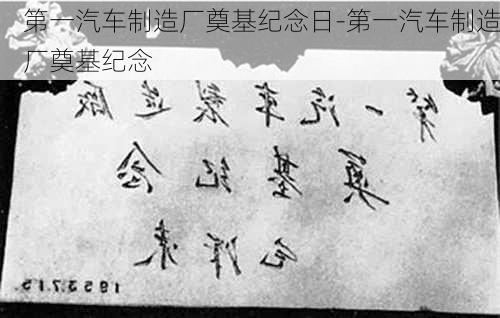 第一汽车制造厂奠基纪念日-第一汽车制造
厂奠基纪念
第一汽車製造廠
奠基紀念
毛澤東
1953.7.15.